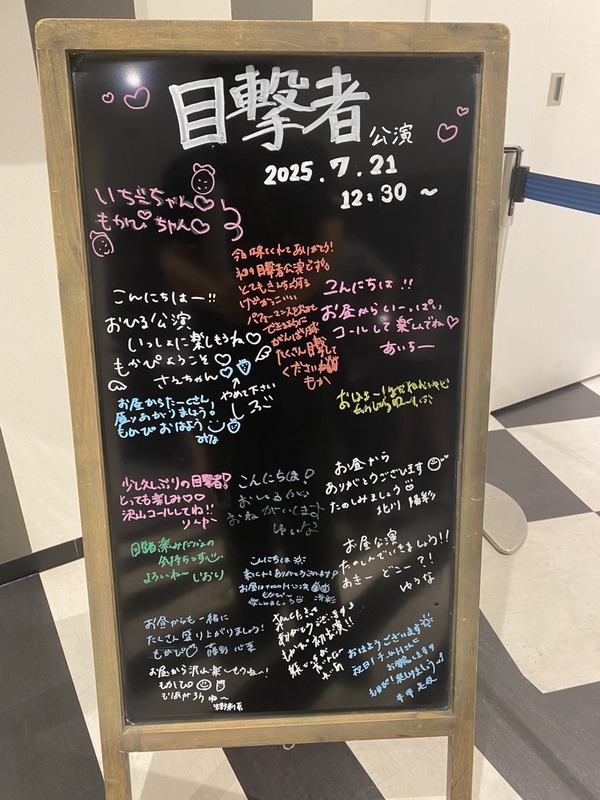 目撃者 公演
2025.7.21
12:30 ~
いちごちゃん♡
もかぴちゃん♡
今日は来てくれてありがとう!
初の目撃者公演です。
とてもきんちょうする
けどかっこいい
パフォーマンスを
できるように
がんばります
たくさん目撃して
くださいね
もか
こんにちは!!
お昼からいーっぱい
コールして楽しんでね♡
あいちー
こんにちはー!!
おひる公演
いっしょに楽しもうね♡
もかぴようこそ♡
さえちゃん♡
↑やめて下さい
お昼からたーくさん
盛りあがりましょう!
もかぴおはよう
みな
少し久しぶりの目撃者!
とっても楽しみ♡♡
沢山コールしてね!!
こんにちは!
おひるから
おねがいします
ゆいな
お昼から
ありがとうございます
たのしみましょう
北川 陽彩
気持ちです
よろしくね〜 しおり
お昼公演
たのしんでいきましょう!!
あきー どこー?!
ゆうな
こんにちは
来てくれてありがとうございます!
楽しみましょう
お昼からも一緒に
たくさん盛り上がりましょう!
もかぴ♡
来てくださって
ありがとうございます
もかぴ初公演!!
おはようございます
お昼から沢山楽しもうね〜!
もかぴ
もりあがろうね〜